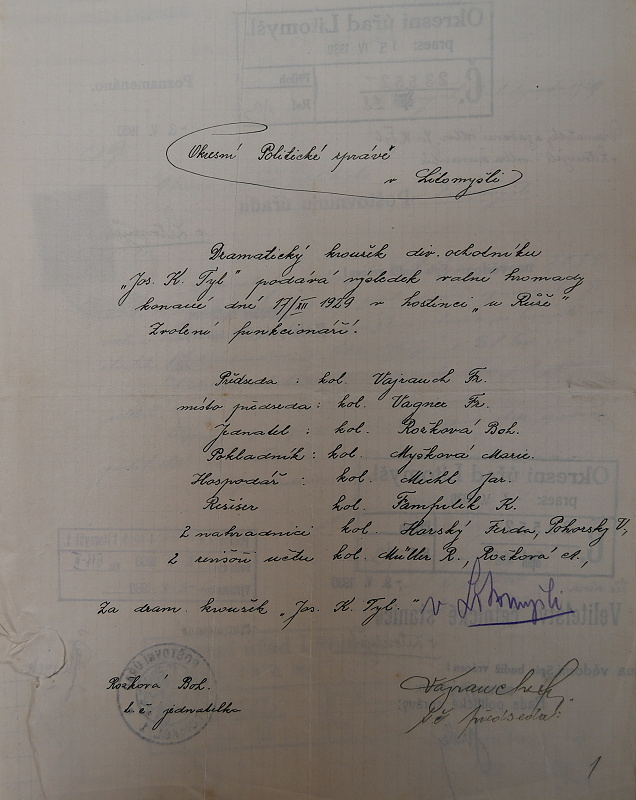 Okresní Politické správě
v Litomyšli
Dramatický kroužek div. ochotníku
„Jos. K. Tyl" podává výsledek valné hromady
konané dné 17/XII 1929 v hostinci „u Růže"
Zvolení funkcionáři:
Předseda : kol. Vajrauch Fr.
místo předseda: kol. Vagner Fr.
Jednatel : kol. Rožková Boh.
Pokladník: kol. Myšková Marie.
Hospodář: kol. Michl Jar.
Režiser kol. Famfulík K.
2 nahradníci kol. Horský Ferda, Pohorský V,
2 revisoři učtu kol. Müller R., Rožková A.,
Za dram. kroužek „Jos. K. Tyl." v Litomyšli
Rožková Boh. Vajrauch
t. č. jednatelka tč předseda:
1